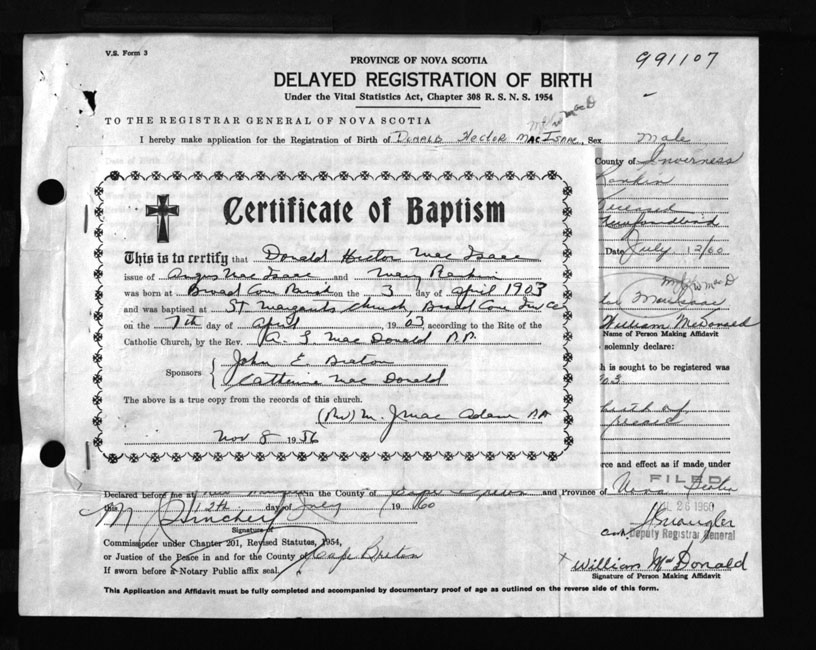 V.S. Form 3
PROVINCE OF NOVA SCOTIA
991107
DELAYED REGISTRATION OF BIRTH
Under the Vital Statistics Act, Chapter 308 R. S. N. S. 1954
TO THE REGISTRAR GENERAL OF NOVA SCOTIA
I hereby make application for the Registration of Birth of Donald Hector MacIsaac, Sex Male
County of Inverness
Rankin
Deceased
Newfoundland
Date July 12/60
Certificate of Baptism
This is to certify that Donald Hector Mac Isaac
issue of Angus Mac Isaac and Mary Rankin
was born at Broad Cove Parish on the 3 day of April 1903
and was baptised at St Margarets Church, Broad Cove
on the 7th day of April 1903, according to the Rite of the
Catholic Church, by the Rev. A. L. Mac Donald P.P.
Sponsors
John E. Breton
Catherine Mac Donald
The above is a true copy from the records of this church.
(Rev) M. J. Mac Adam P.P.
Nov 8 1956
MacIsaac
William McDonald
Name of Person Making Affidavit
solemnly declare:
h is sought to be registered was
903
birth of
rce and effect as if made under
Declared before me at New in the County of Cape Breton and Province of Nova Scotia
this 12th day of July 1960
FILED
26 1960
Deputy Registrar General
M Hinchey
Signature of
Commissioner under Chapter 201, Revised Statutes, 1954,
or Justice of the Peace in and for the County of Cape Breton
If sworn before a Notary Public affix seal.
x William McDonald
Signature of Person Making Affidavit
This Application and Affidavit must be fully completed and accompanied by documentary proof of age as outlined on the reverse side of this form.